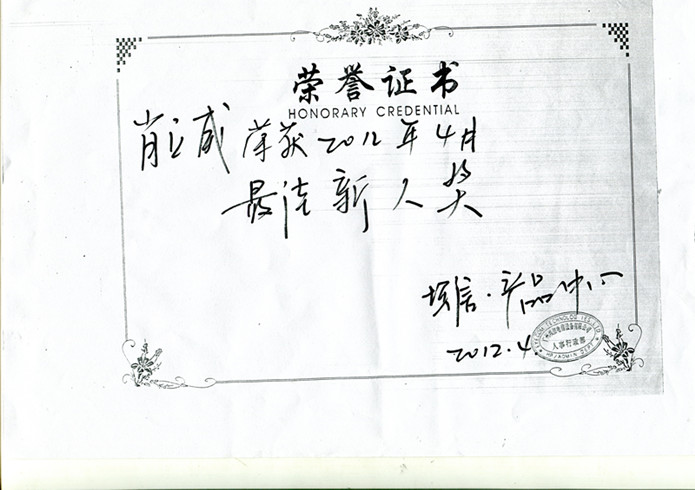 荣誉证书
HONORARY CREDENTIAL
肖立成 荣获2012年4月
最佳新人奖
产品中心
2012.4
人事行政部